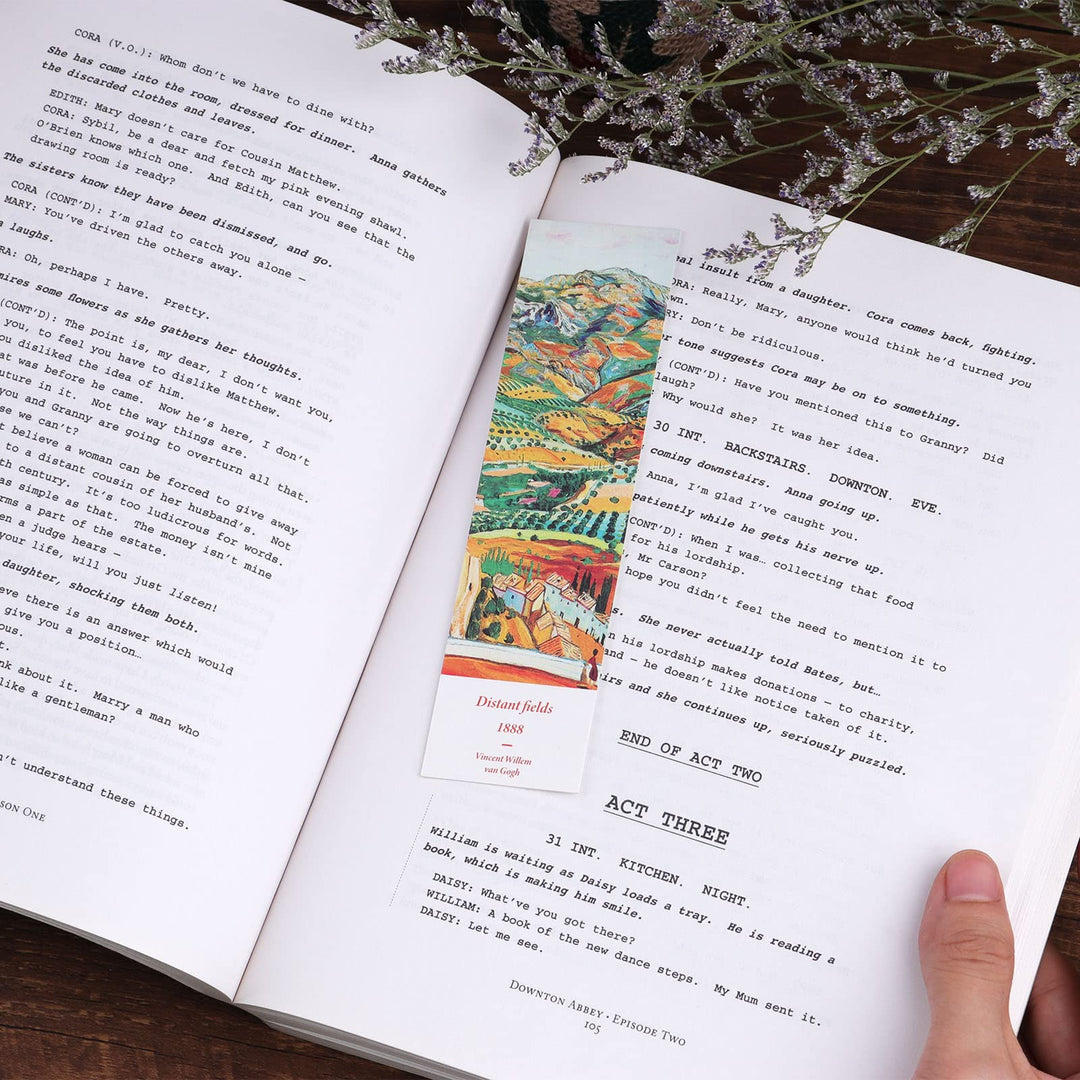 CORA (V.O.): Whom don't we have to dine with?
She has come into the room, dressed for dinner. Anna gathers
the discarded clothes and leaves.
EDITH: Mary doesn't care for Cousin Matthew.
CORA: Sybil, be a dear and fetch my pink evening shawl.
O'Brien knows which one. And Edith, can you see that the
drawing room is ready?
The sisters know they have been dismissed, and go.
CORA (CONT'D): I'm glad to catch you alone –
MARY: You've driven the others away.
a laughs.
RA: Oh, perhaps I have. Pretty.
mires some flowers as she gathers her thoughts.
(CONT'D): The point is, my dear, I don't want you,
you, to feel you have to dislike Matthew.
ou disliked the idea of him.
at was before he came. Now he's here, I don't
uture in it. Not the way things are.
you and Granny are going to overturn all that.
se we can't?
t believe a woman can be forced to give away
to a distant cousin of her husband's. Not
th century. It's too ludicrous for words.
as simple as that. The money isn't mine
rms a part of the estate.
en a judge hears –
your life, will you just listen!
daughter, shocking them both.
eve there is an answer which would
give you a position…
ous.
t.
nk about it. Marry a man who
like a gentleman?
n't understand these things.
SON ONE
nal insult from a daughter. Cora comes back, fighting.
ORA: Really, Mary, anyone would think he'd turned you
wn.
Y: Don't be ridiculous.
r tone suggests Cora may be on to something.
(CONT'D): Have you mentioned this to Granny? Did
laugh?
Why would she? It was her idea.
30 INT. BACKSTAIRS. DOWNTON. EVE.
coming downstairs. Anna going up.
Anna, I'm glad I've caught you.
patiently while he gets his nerve up.
CONT'D): When I was… collecting that food
for his lordship.
, Mr Carson?
hope you didn't feel the need to mention it to
s. She never actually told Bates, but…
n his lordship makes donations – to charity,
and – he doesn't like notice taken of it.
irs and she continues up, seriously puzzled.
END OF ACT TWO
ACT THREE
31 INT. KITCHEN. NIGHT.
William is waiting as Daisy loads a tray. He is reading a
book, which is making him smile.
DAISY: What've you got there?
WILLIAM: A book of the new dance steps. My Mum sent it.
DAISY: Let me see.
DOWNTON ABBEY • EPISODE TWO
105
Distant fields
1888
Vincent Willem
van Gogh